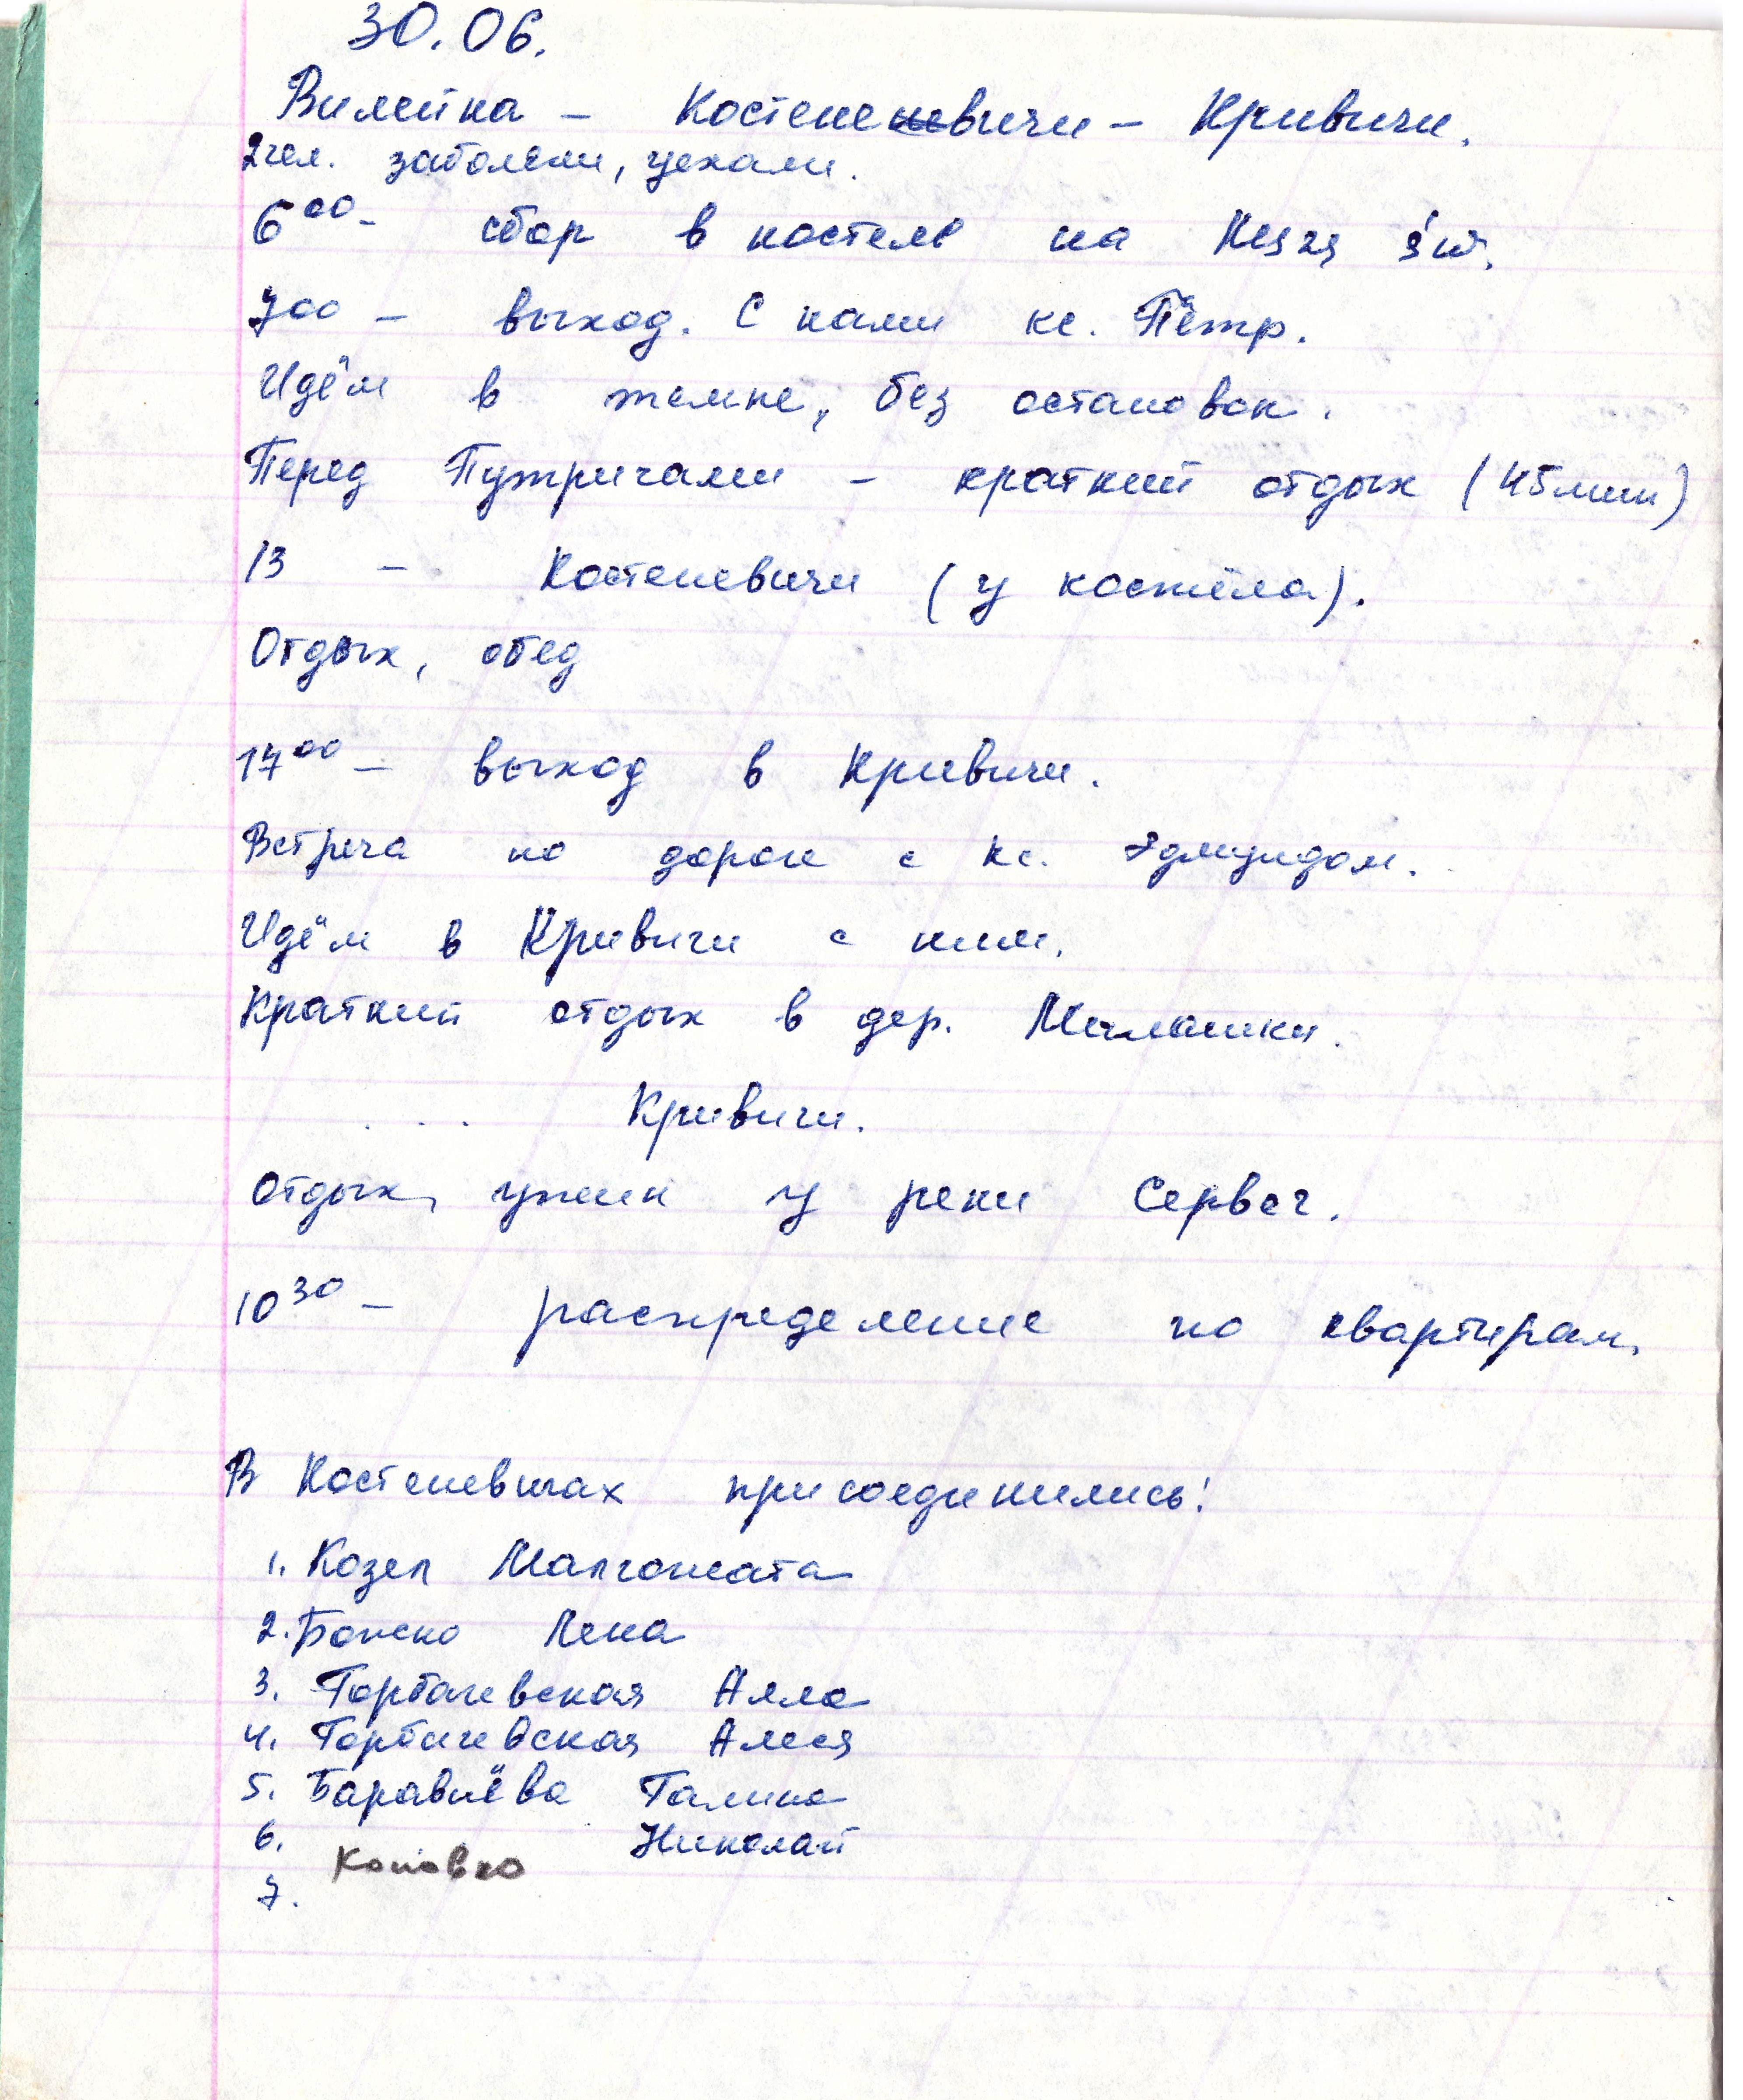 30.06.
Вилейка – Костеневичи – Кривичи.
2 чел. заболели, уехали.
6⁰⁰ – сбор в костеле на Mszą św.
7⁰⁰ – выход. С нами кс. Пётр.
Идём в темпе, без остановок.
Перед Пузричами – краткий отдых (45 мин)
13 – Костеневичи (у костёла).
Отдых, обед
17⁰⁰ – выход в Кривичи.
Встреча по дороге с кс. Эдмундом.
Идём в Кривичи с ним.
Краткий отдых в дер.
. . . Кривичи.
Отдых, ужин у реки Сервеч.
10³⁰ – распределение по квартирам.
В Костеневичах присоединились:
1. Козел Малгожата
2. Лена
3. Горбачевская Алла
4. Горбачевская Алеся
5. Галина
6. Николай
7.